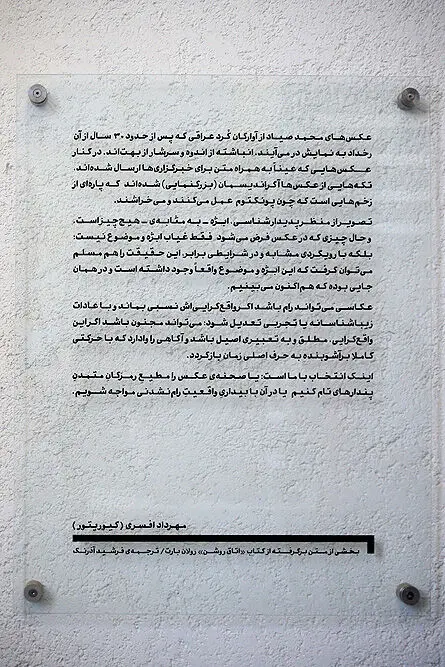 عکس‌های محمد صیاد از آوارگان کُرد عراقی که پس از حدود ۳۰ سال از آن
رخداد به نمایش در می‌آیند، انباشته از اندوه و سرشار از بهت‌اند. در کنار
عکس‌هایی که عیناً به همراه متن برای خبرگزاری‌ها ارسال شده‌اند،
تکه‌هایی از عکس‌ها آگراندیسمان (بزرگنمایی) شده‌اند که پاره‌ای از
زخم‌هایی است که چون پونکتوم عمل می‌کنند و می‌خراشند.
تصویر از منظر پدیدارشناسی، ابژه – به مثابه‌ی – هیچ چیز است.
و حال چیزی که در عکس فرض می‌شود فقط غیاب ابژه و موضوع نیست؛
بلکه با رویکردی مشابه و در شرایطی برابر، این حقیقت را هم مسلم
می‌توان گرفت که این ابژه و موضوع واقعاً وجود داشته است و در همان
جایی بوده که هم‌اکنون می‌بینیم.
عکاسی می‌تواند رام باشد اگر واقع‌گرایی‌اش نسبی بماند و با عادات
زیباشناسانه یا تجربی تعدیل شود؛ می‌تواند مجنون باشد اگر این
واقع‌گرایی، مطلق و به تعبیری اصیل باشد و آگاهی را وادارد که با حرکتی
کاملا برآشوبنده به حرف اصلی زمان بازگردد.
اینک انتخاب با ما است: یا صحنه‌ی عکس را مطیع رمزگان متمدنِ
پندارهای تام کنیم یا در آن با بیداریِ واقعیتِ رام‌نشدنی مواجه شویم.
مهرداد افسری (کیوریتور)
بخشی از متن برگرفته از کتاب «اتاق روشن» رولان بارت/ ترجمه‌ی فرشید آذرنگ